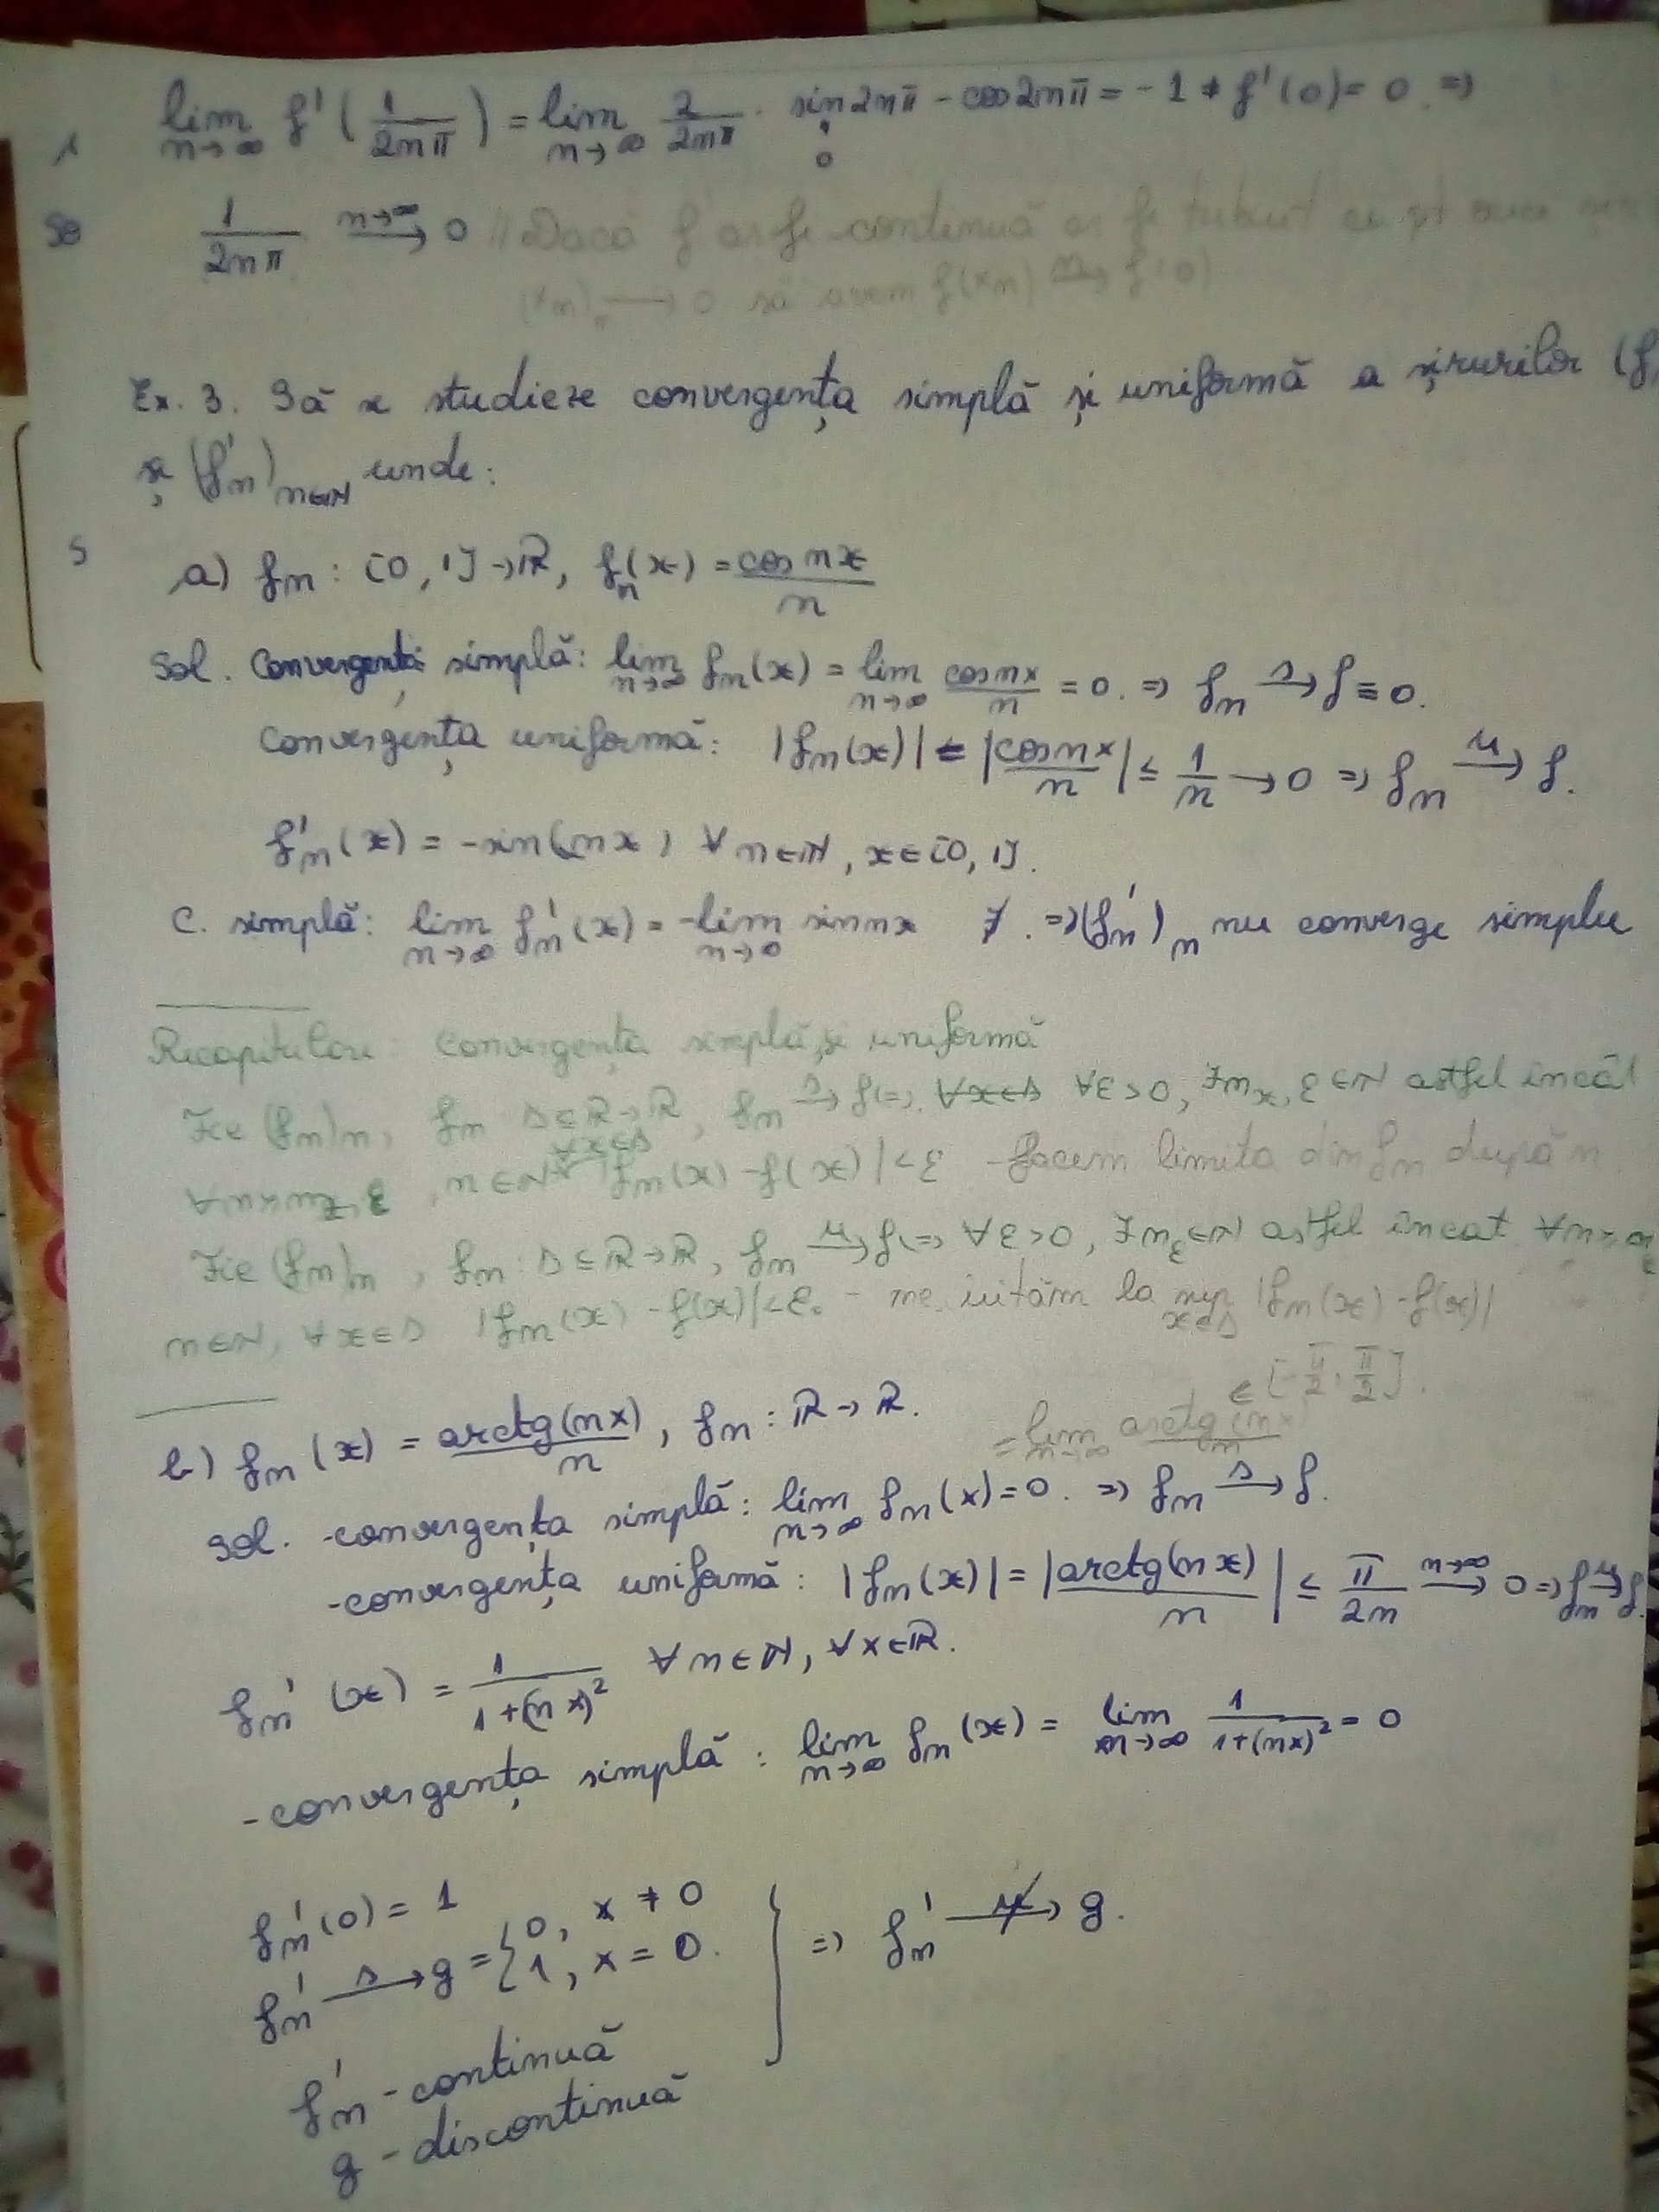 lim_{n→∞} f'(1/2nπ) = lim_{n→∞} 2/2nπ · sin2nπ - cos2nπ = -1 ≠ f'(0) = 0 ⇒
0
1/2nπ —n→∞→ 0 // Dacă f' ar fi continuă ar fi trebuit ca pt orice
(x_n)_n → 0 să avem f(x_n) → f(0)
Ex. 3. Să se studieze convergența simplă și uniformă a șirurilor (f
și (f'_n)_{n∈N} unde:
a) f_n : [0, 1] → R, f_n(x) = cos nx / n
Sol. Convergența simplă: lim_{n→∞} f_n(x) = lim_{n→∞} cos nx / n = 0. ⇒ f_n —s→ f ≡ 0.
Convergența uniformă: |f_n(x)| = |cos nx / n| ≤ 1/n → 0 ⇒ f_n —u→ f.
f'_n(x) = -sin(nx) ∀ n∈N, x∈[0, 1].
C. simplă: lim_{n→∞} f'_n(x) = -lim_{n→0} sin nx ∄. ⇒ (f'_n)_n nu converge simplu
Recapitulare: convergența simplă și uniformă
Fie (f_n)_n, f_n D⊆R→R, f_n —s→ f ⇔ ∀x∈D ∀ε>0, ∃n_{x,ε}∈N astfel încât
∀x∈D
∀n≥n_{x,ε}, n∈N |f_n(x) - f(x)| < ε - facem limita din f_n după n
Fie (f_n)_n, f_n : D⊆R→R, f_n —u→ f ⇔ ∀ε>0, ∃n_ε∈N astfel încat ∀n≥n_ε
n∈N, ∀x∈D |f_n(x) - f(x)| < ε. - ne uităm la sup_{x∈D} |f_n(x) - f(x)|
∈[-π/2, π/2].
b) f_n(x) = arctg(nx)/n, f_n : R → R.
= lim_{n→∞} arctg(nx)/n
Sol. -convergența simplă: lim_{n→∞} f_n(x) = 0. ⇒ f_n —s→ f.
-convergența uniformă: |f_n(x)| = |arctg(nx)/n| ≤ π/2n —n→∞→ 0 ⇒ f_n —u→ f.
f_n'(x) = 1/(1+(nx)²) ∀ n∈N, ∀x∈R.
-convergența simplă: lim_{n→∞} f_n(x) = lim_{n→∞} 1/(1+(nx)²) = 0
f_n'(0) = 1
f_n' —s→ g = {0, x ≠ 0
1, x = 0. } ⇒ f_n' —u̸→ g.
f_n' - continuă
g - discontinuă